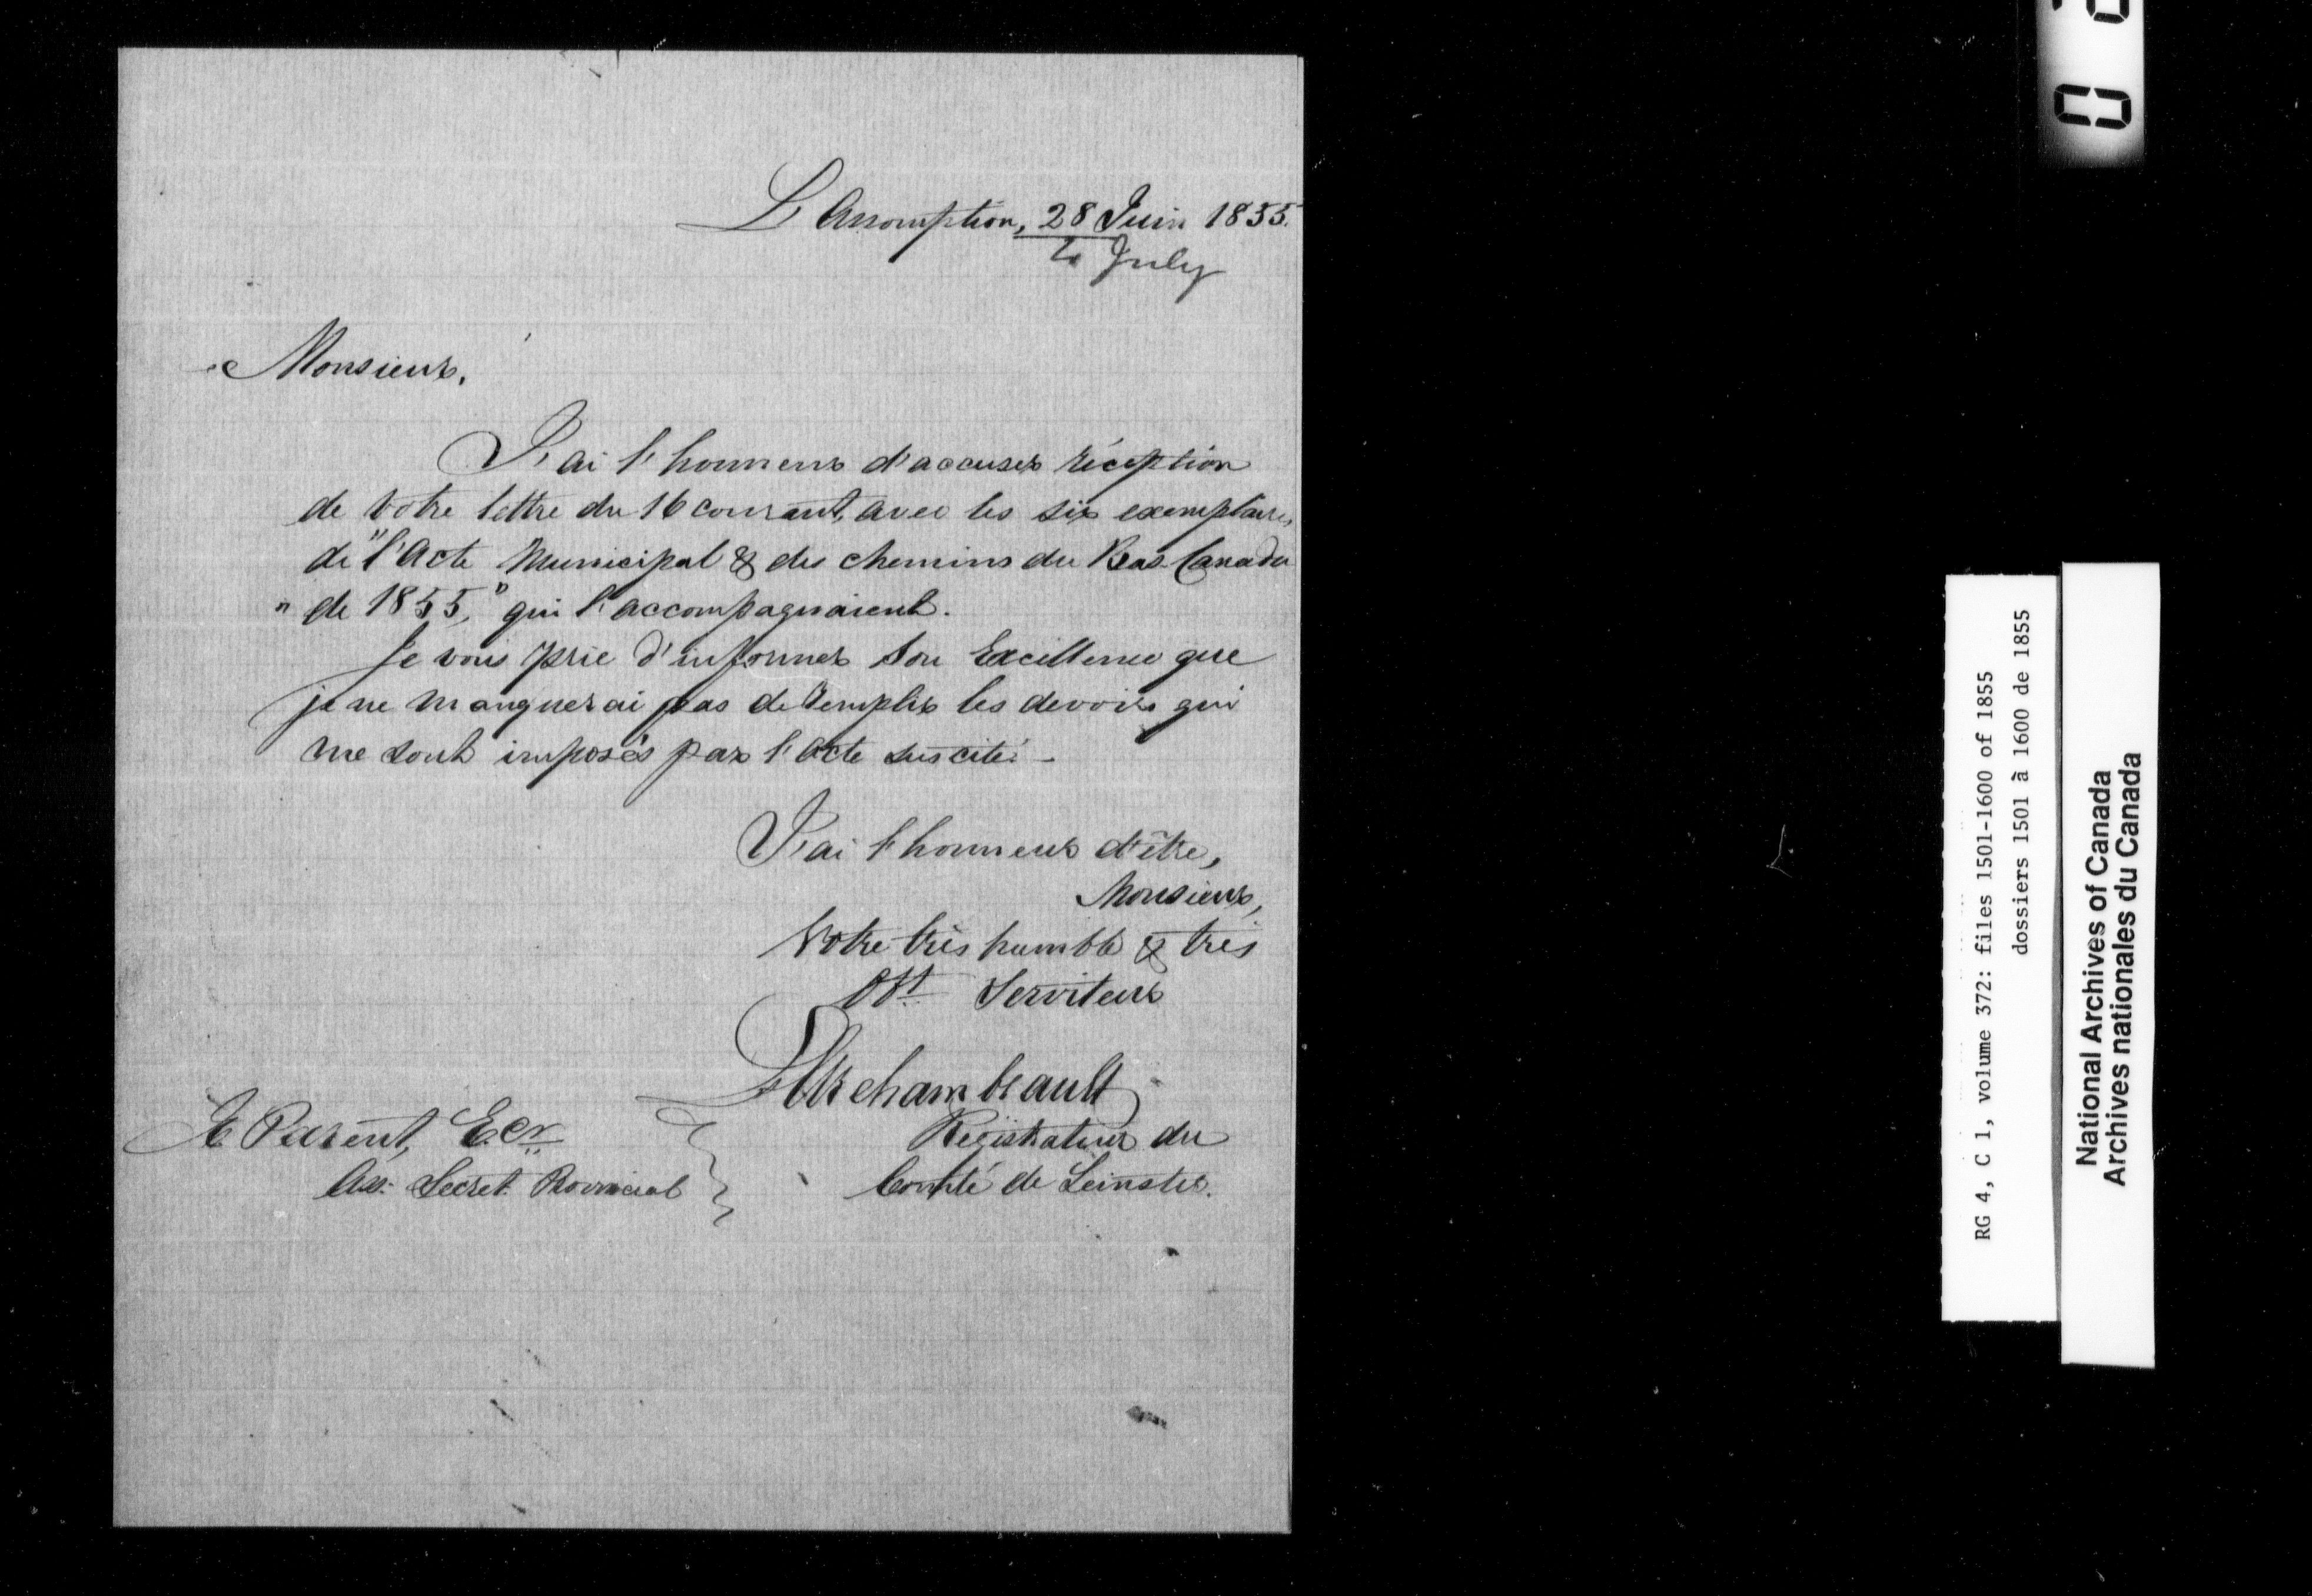 L'Assomption, 28 Juin 1855.
2 July
Monsieur,
J'ai l'honneur d'accuser réception
de votre lettre du 16 courant, avec les six exemplaires
de "l'Acte Municipal & des chemins du Bas-Canada
" de 1855," qui l'accompagnaient.
Je vous prie d'informer Son Excellence que
je ne manquerai pas de remplir les devoirs qui
me sont imposés par l'acte suscité. -
J'ai l'honneur d'être,
Monsieur,
Votre très humble & très
Obt Serviteur
Archambeault
Registrateur du
Comté de Leinster.
E Parent, Ecr
Ass. Secret. Provincial
RG 4, C 1, volume 372: files 1501-1600 of 1855
dossiers 1501 à 1600 de 1855
National Archives of Canada
Archives nationales du Canada